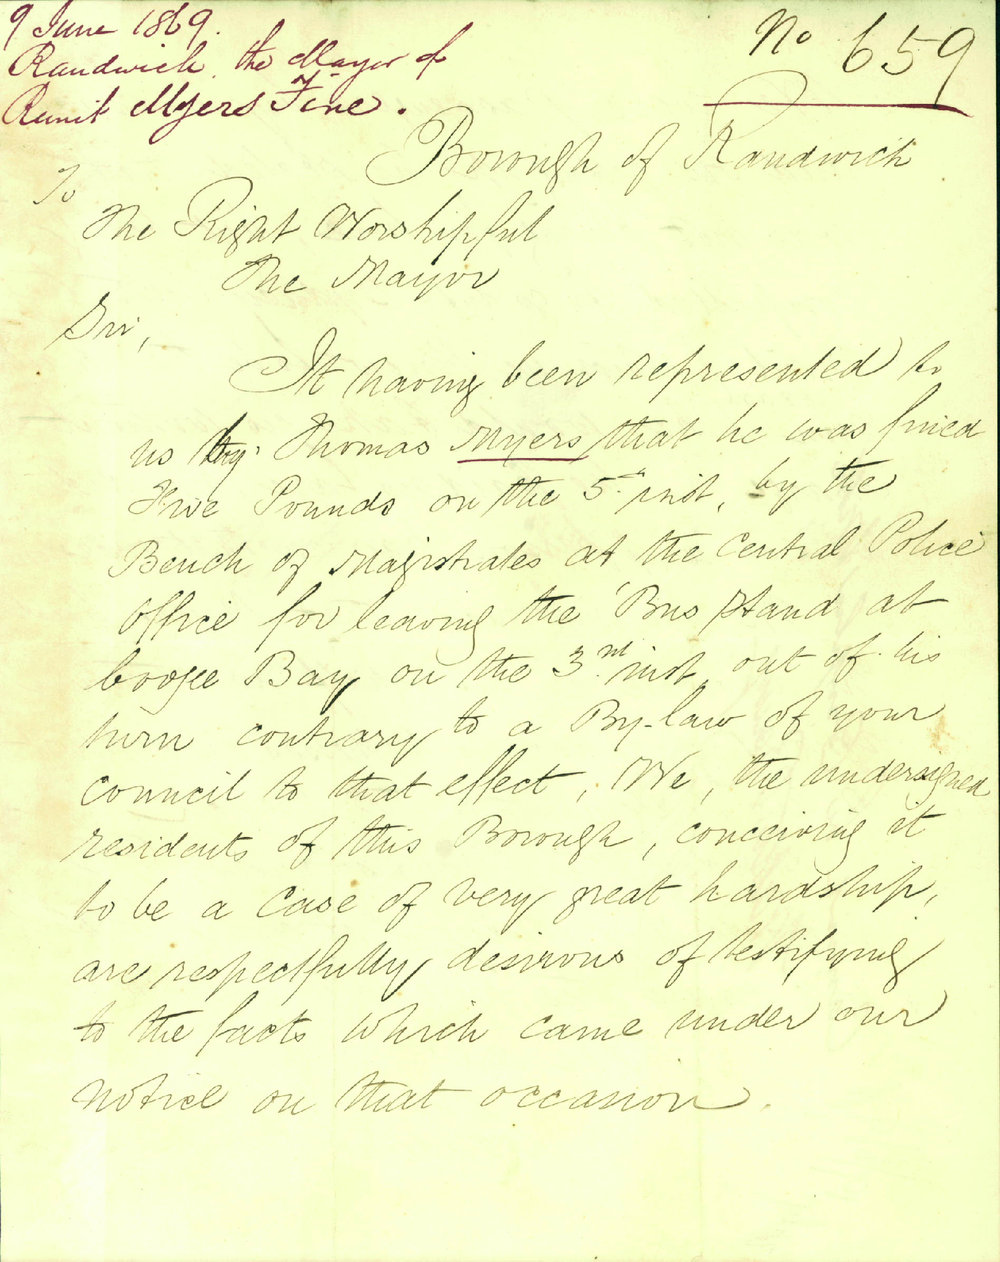 9 June 1869.
Randwick, the Mayor of
Remit Myers Fine.
No 659
Borough of Randwick
To
The Right Worshipful
The Mayor
Sir,
It having been represented to
us by Thomas Myers that he was fined
Five Pounds on the 5th inst, by the
Bench of Magistrates at the Central Police
Office for leaving the 'Bus Stand at
Coogee Bay on the 3rd inst out of his
turn contrary to a By-law of your
Council to that effect, We, the undersigned
residents of this Borough, conceiving it
to be a case of very great hardship,
are respectfully desirous of testifying
to the facts which came under our
notice on that occasion.